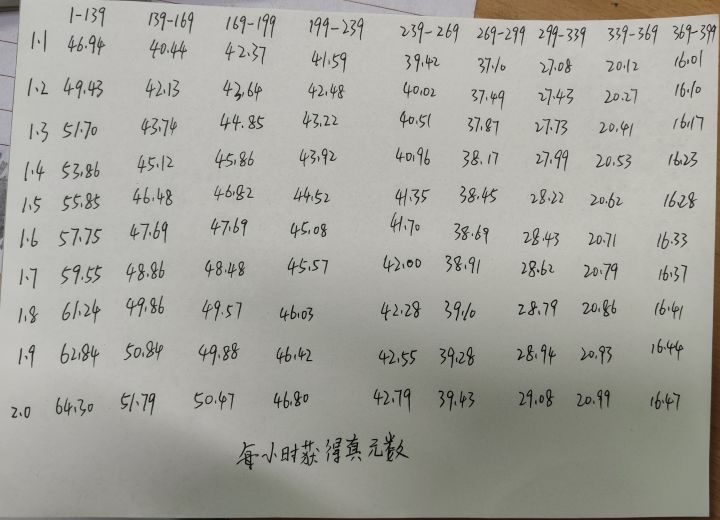 1-139 139-169 169-199 199-239 239-269 269-299 299-339 339-369 369-399
1.1 46.94 40.44 42.37 41.59 39.42 37.10 27.08 20.12 16.01
1.2 49.43 42.13 43.64 42.48 40.02 37.49 27.43 20.27 16.10
1.3 51.70 43.74 44.85 43.22 40.51 37.87 27.73 20.41 16.17
1.4 53.86 45.12 45.86 43.92 40.96 38.17 27.99 20.53 16.23
1.5 55.85 46.48 46.82 44.52 41.35 38.45 28.22 20.62 16.28
1.6 57.75 47.69 47.69 45.08 41.70 38.69 28.43 20.71 16.33
1.7 59.55 48.86 48.48 45.57 42.00 38.91 28.62 20.79 16.37
1.8 61.24 49.86 49.57 46.03 42.28 39.10 28.79 20.86 16.41
1.9 62.84 50.84 49.88 46.42 42.55 39.28 28.94 20.93 16.44
2.0 64.30 51.79 50.47 46.80 42.79 39.43 29.08 20.99 16.47
每小时获得真元数